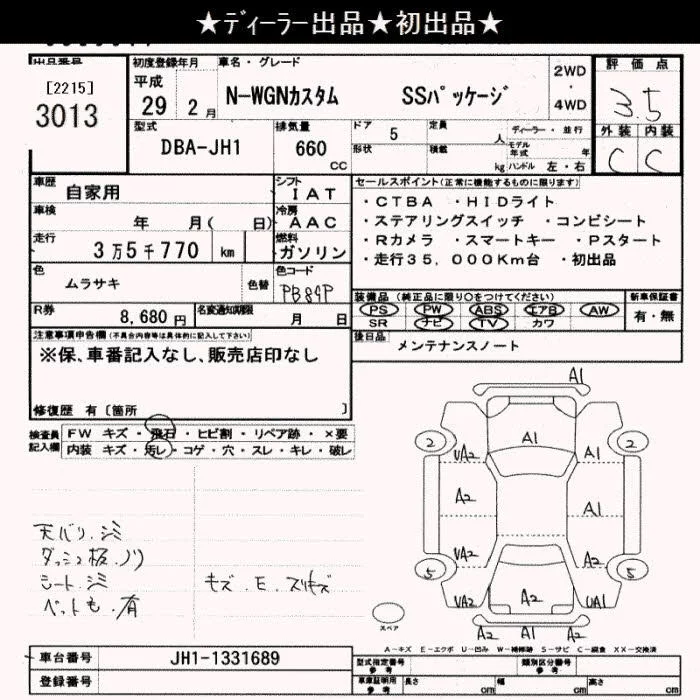 ★ディーラー出品★初出品★
出品番号
[2215]
3013
初度登録年月
平成
29 2 月
車名・グレード
N-WGNカスタム SSパッケージ
2WD
・
4WD
評価点
3.5
外装 内装
C C
型式
DBA-JH1
排気量
660
CC
ドア 5
形状
定員 人
積載 kg
ディーラー・並行
モデル年式 年
ハンドル 左・右
車歴
自家用
シフト
IAT
車検
年 月( 日)
冷房
AAC
走行
3万5千770 km
燃料
ガソリン
色
ムラサキ
色替
色コード
PB89P
R券
8,680円
名変通知期限
月 日
セールスポイント(正常に機能するものに限ります)
・CTBA ・HIDライト
・ステアリングスイッチ ・コンビシート
・Rカメラ ・スマートキー ・Pスタート
・走行35,000Km台 ・初出品
装備品 (純正品に限り○をつけてください)
PS PW ABS エアB AW
SR ナビ TV カワ
新車保証書
有・無
後日品
メンテナンスノート
注意事項申告欄(不具合内容等は具体的に記入して下さい)
※保、車番記入なし、販売店印なし
修復歴 有〔箇所 〕
検査員
記入欄
FW キズ・飛石・ヒビ割・リペア跡・×要
内装 キズ・汚レ・コゲ・穴・スレ・キレ・破レ
天バリ.シミ
ダッシュ板.ノリ
シート.シミ
ペットも.有
キズ.E.スリキズ
A1
2 2
UA2 A1 A2
A2 A1
UA2 A2
5 5
UA2 A2 A2 UA1
A2 A1 A2
スペア
A-キズ E-エクボ U-凹み W-補修跡 S-サビ C-腐食 XX-交換済
車台番号
JH1-1331689
登録番号
型式指定番号
参考
類別区分番号
参考
車庫証明用
参考
長さ cm
幅 cm
高さ cm